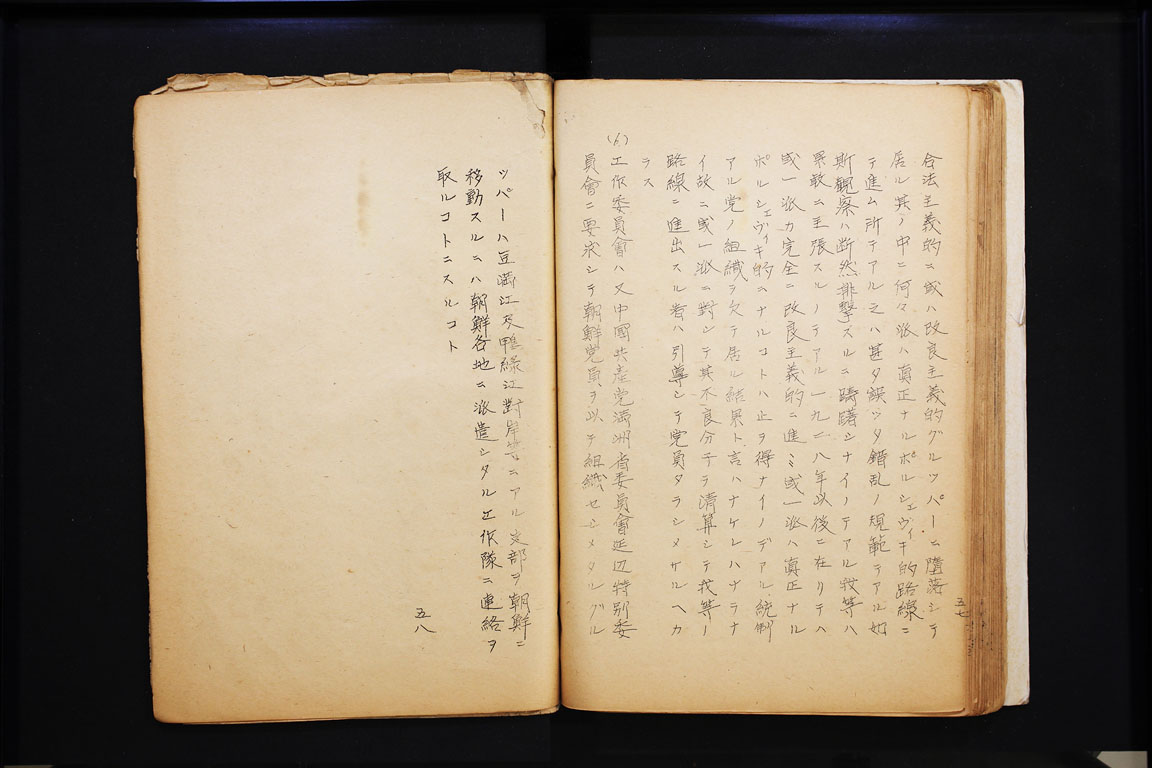 合法主義的ニ或ハ改良主義的グルツパーニ墮落シテ
居ル其ノ中ニ何々派ハ眞正ナルボルシエヴイキ的路線ニ
テ進ム所テアル之ハ甚タ誤ツタ錯乱ノ規範テアル如
斯観察ハ断然排撃スルニ躊躇シナイノテアル我等ハ
果敢ニ主張スルノテアル一九二八年以後ニ在リテハ
或一派カ完全ニ改良主義的ニ進ミ或一派ハ眞正ナル
ボルシェヴィキ的ニナルコトハ止ヲ得ナイノデアル統制
アル党ノ組織ヲ欠テ居ル結果ト言ハナケレハナラナ
イ故ニ或一派ニ對シテ其不良分子ヲ清算シテ我等ノ
路線ニ進出スル者ハ引導シテ党員タラシメサルヘカ
ラス
(6)
工作委員會ハ又中國共産党満洲省委員會延辺特別委
員會ニ要求シテ朝鮮党員ヲ以テ組織セシメタルグル
五七
ツパーハ豆満江及鴨緑江對岸等ニアル支部ヲ朝鮮ニ
移動スルニハ朝鮮各地ニ派遣シタル工作隊ニ連絡ヲ
取ルコトニスルコト
五八